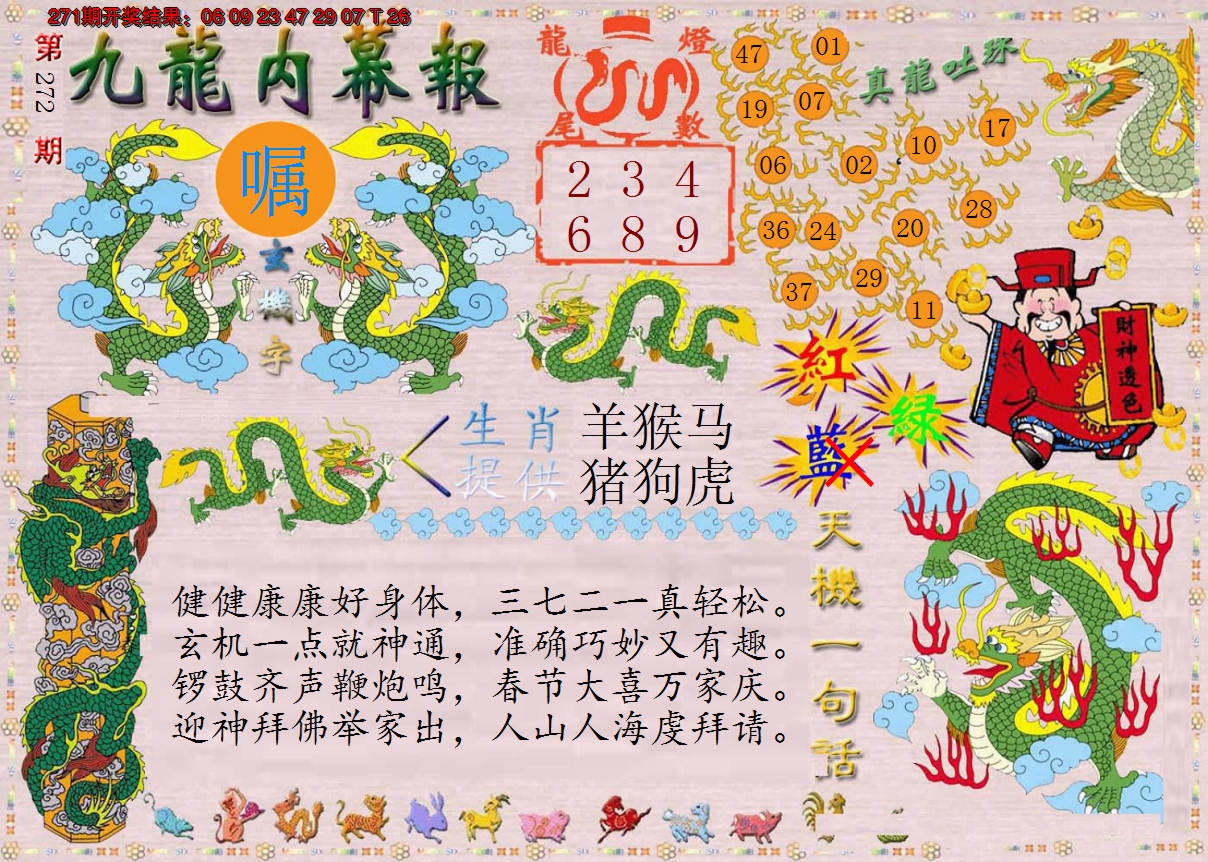 271期开奖结果：06 09 23 47 29 07 T 26
第272期
九龍内幕報
嘱
玄機字
龍燈
尾數
2 3 4
6 8 9
真龍吐珠
47 01
19 07
10 17
06 02
36 24 20 28
37 29 11
財神透色
紅
綠
藍
生肖
提供
羊猴马
猪狗虎
天機一句話
健健康康好身体，三七二一真轻松。
玄机一点就神通，准确巧妙又有趣。
锣鼓齐声鞭炮鸣，春节大喜万家庆。
迎神拜佛举家出，人山人海虔拜请。